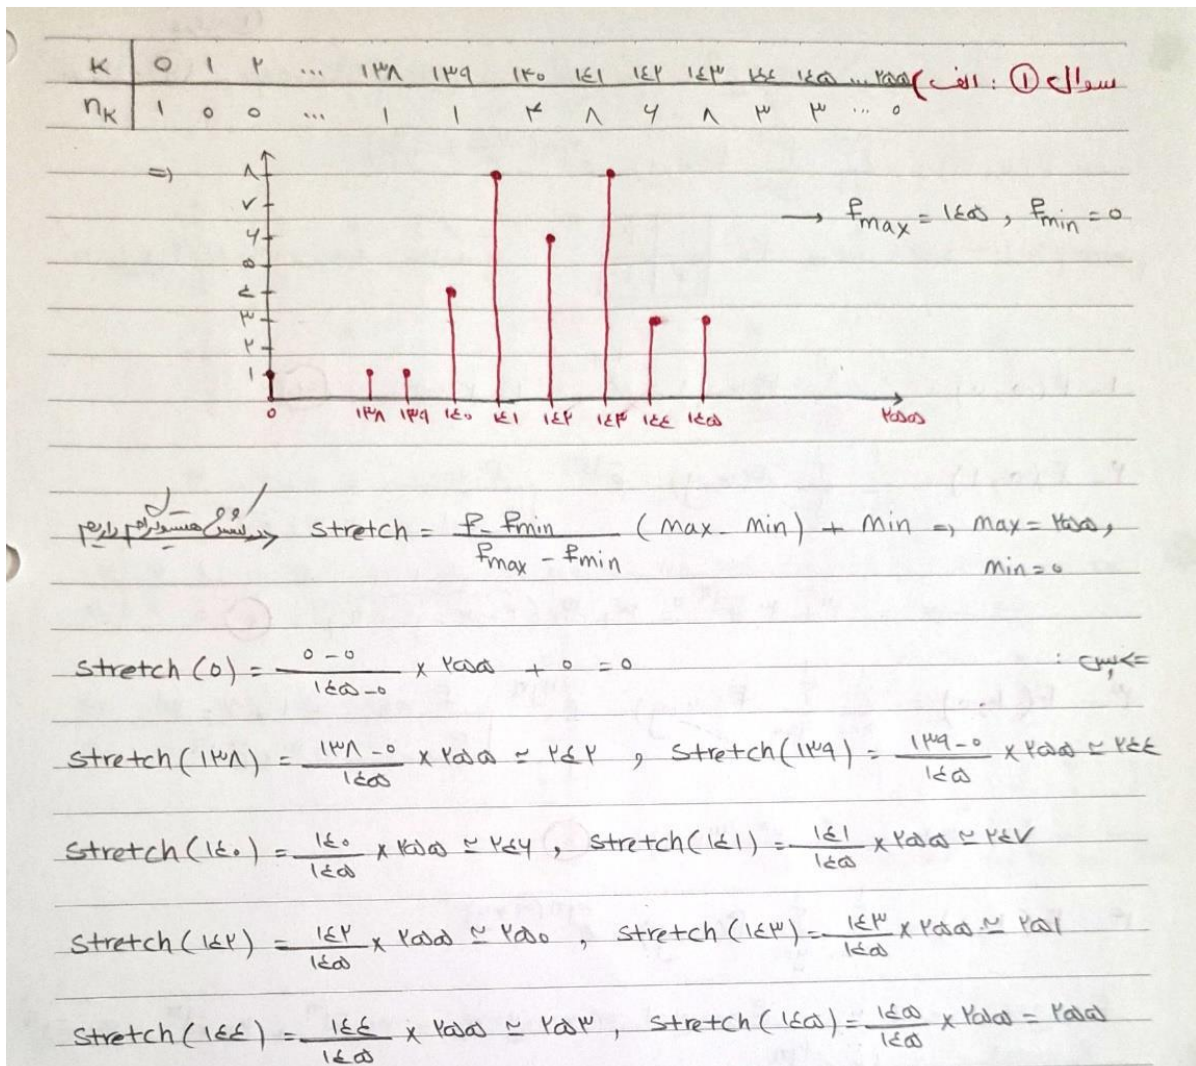 سوال ① : الف)
K ۰ ۱ ۲ ... ۱۳۸ ۱۳۹ ۱۴۰ ۱۴۱ ۱۴۲ ۱۴۳ ۱۴۴ ۱۴۵ ... ۲۵۵
nk ۱ ۰ ۰ ... ۱ ۱ ۴ ۸ ۶ ۸ ۳ ۳ ... ۰
=>
۸
۷
۶
۵
۴
۳
۲
۱
→ fmax = ۱۴۵ , fmin = ۰
۰ ۱۳۸ ۱۳۹ ۱۴۰ ۱۴۱ ۱۴۲ ۱۴۳ ۱۴۴ ۱۴۵ ۲۵۵
در کشش هیستوگرام داریم => stretch = f - fmin / fmax - fmin (max - min) + min => max = ۲۵۵,
min = ۰
=> پس :
stretch (۰) = ۰ - ۰ / ۱۴۵ - ۰ × ۲۵۵ + ۰ = ۰
stretch (۱۳۸) = ۱۳۸ - ۰ / ۱۴۵ × ۲۵۵ ≃ ۲۴۲ , stretch (۱۳۹) = ۱۳۹ - ۰ / ۱۴۵ × ۲۵۵ ≃ ۲۴۴
stretch (۱۴۰) = ۱۴۰ / ۱۴۵ × ۲۵۵ ≃ ۲۴۶ , stretch (۱۴۱) = ۱۴۱ / ۱۴۵ × ۲۵۵ ≃ ۲۴۷
stretch (۱۴۲) = ۱۴۲ / ۱۴۵ × ۲۵۵ ≃ ۲۵۰ , stretch (۱۴۳) = ۱۴۳ / ۱۴۵ × ۲۵۵ ≃ ۲۵۱
stretch (۱۴۴) = ۱۴۴ / ۱۴۵ × ۲۵۵ ≃ ۲۵۳ , stretch (۱۴۵) = ۱۴۵ / ۱۴۵ × ۲۵۵ = ۲۵۵